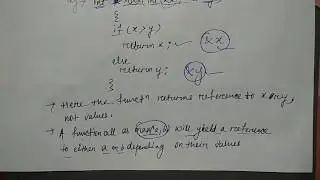 {
if (x > y)
return x; &x
else
return y; &y
}
→ Here the functn returns reference to x or y,
not values.
→ A function call as max(a,b) will yield a reference
to either a or b depending on their values